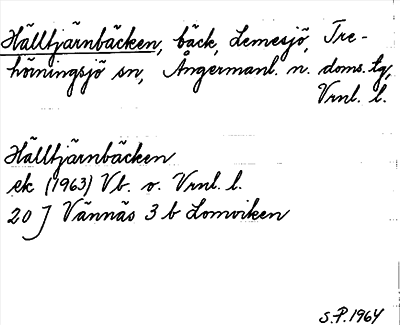 Hälltjärnbäcken, bäck, Lemesjö, Tre-
hörningsjö sn, Ångermanl. n. doms. lg,
Vrnl. l.
Hälltjärnbäcken
ek (1963) Vb. o. Vrnl. l.
20 J Vännäs 3 b Lomviken
S.P. 1964